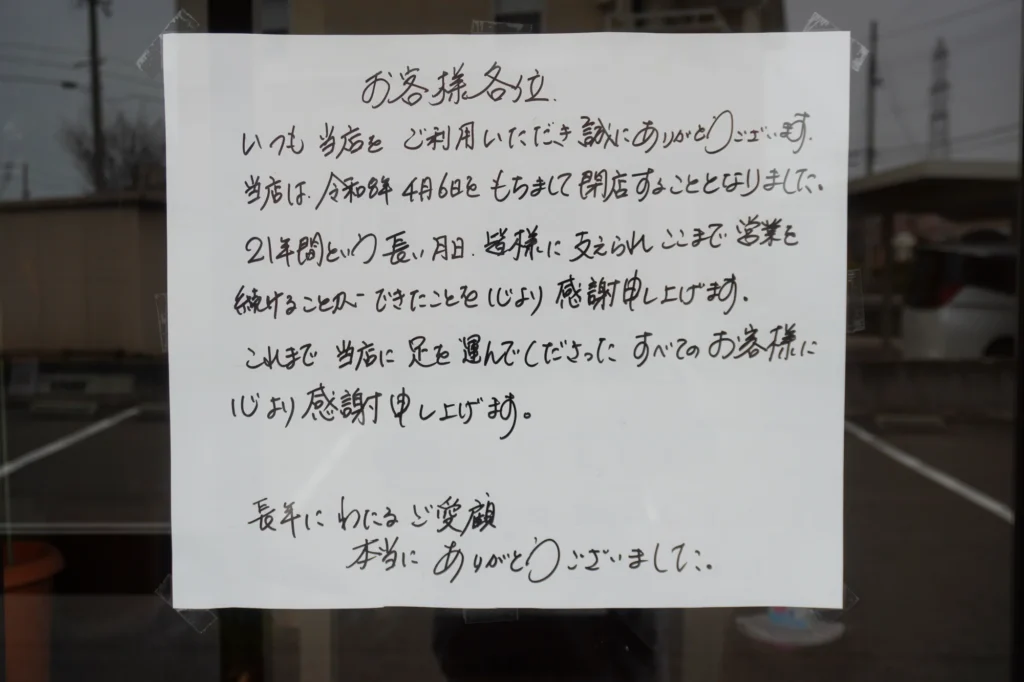 お客様各位.
いつも 当店を ご利用いただき 誠にありがとうございます.
当店は. 令和8年 4月6日を もちまして 閉店することとなりました。
21年間という 長い 月日. 皆様に 支えられ ここまで 営業を
続けることが できたことを 心より 感謝申し上げます.
これまで 当店に 足を 運んでくださった すべての お客様に
心より 感謝申し上げます。
長年に わたる ご愛顧
本当に ありがとうございました.